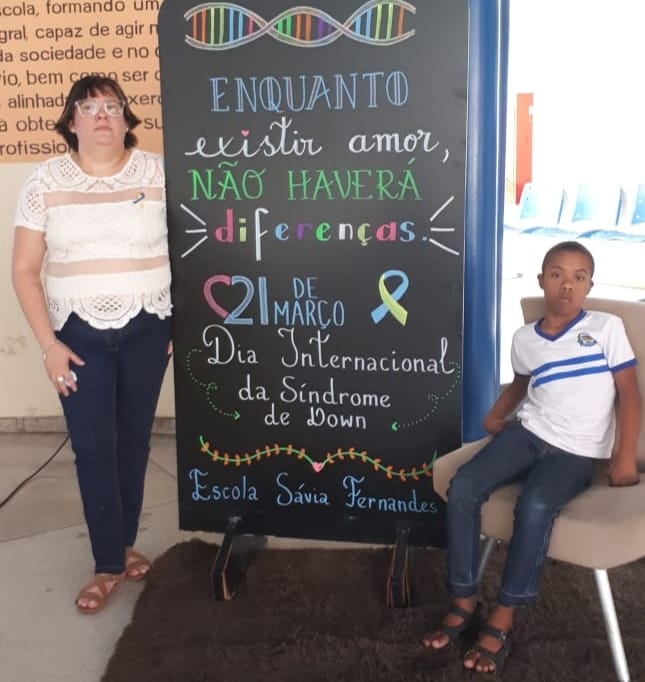 scola, formando um
gral, capaz de agir
da sociedade e no
io, bem como ser
alinhada exerc
a obte su
rofission
ENQUANTO
existir amor,
NÃO HAVERÁ
diferenças.
21 DE
MARÇO
Dia Internacional
da Síndrome
de Down
Escola Sávia Fernandes